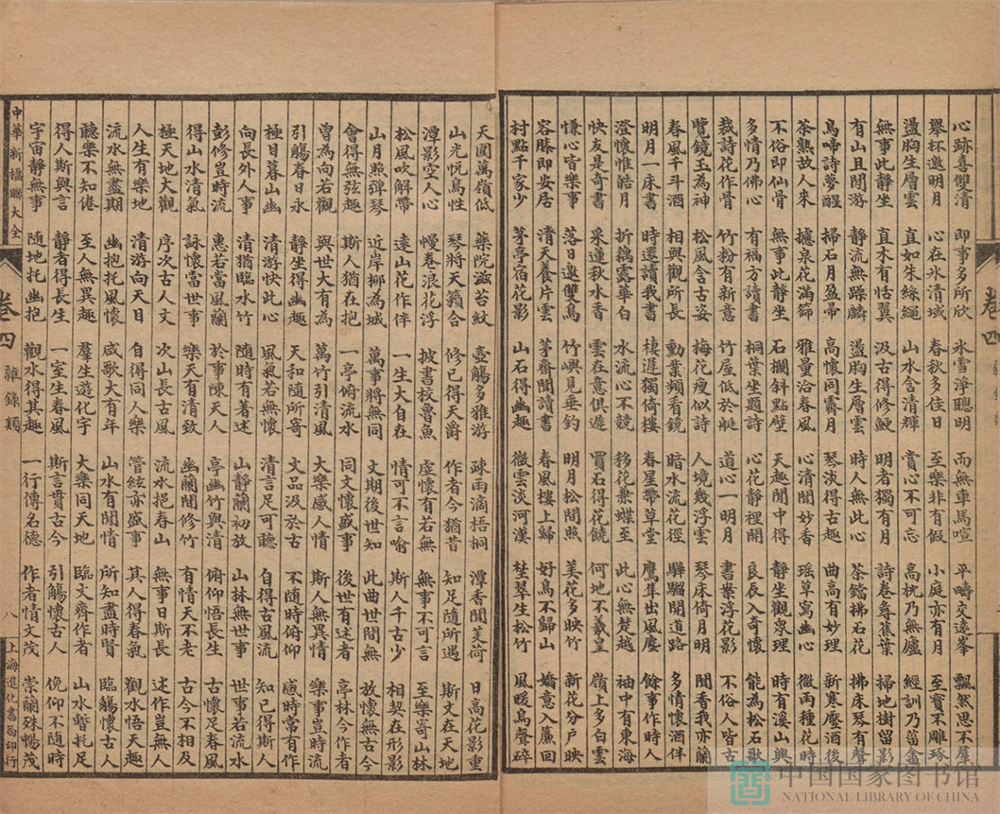 心跡喜雙清 即事多所欣 氷雪淨聰明 而無車馬喧 平疇交遠峯 飄然思不羣
舉杯邀明月 心在水清域 春秋多佳日 至樂非有假 小庭亦有月 至寶不雕琢
盪胸生層雲 直如朱絲繩 山水含清輝 賞心不可忘 高枕乃無廬 經訓乃菑畬
無事此靜坐 直木有恬翼 汲古得修綆 明者獨有月 詩卷舊蕉葉 掃地樹留影
有山且閒游 靜流無躁鱗 盪胸生層雲 時人無此心 茶鐺拂石花 拂床琴有聲
鳥啼詩夢醒 掃石月盈帚 高懷同霽月 琴淡得古趣 曲高有妙理 新寒壓酒後
茶熟故人來 攄泉花滿篩 雅量洽春風 心清聞妙香 瑶草寫幽心 微雨種花時
不俗即仙骨 無事此靜坐 石欄斜點壁 天趣閒中得 靜坐觀泉理 時有溪山興
多情乃佛心 有福方讀書 桐葉坐題詩 心花靜裡開 良辰入奇懷 能為松石歌
裁詩花作骨 竹粉有新意 竹屋低於艇 道心一明月 書葉浮花影 不俗人皆古
覽鏡玉為神 松風含古姿 梅花瘦似詩 人境幾浮雲 琴床倚月明 聞香我亦蘭
春風千斗酒 相與觀所長 勳業頻看鏡 暗水流花徑 驊騮開道路 多情懷酒伴
明月一床書 時還讀我書 棲遲獨倚樓 春星帶草堂 鷹隼出風塵 餘事作時人
澄懷惟皓月 折藕露華白 水流心不競 移花兼蝶至 此心無楚越 袖中有東海
快友是奇書 采蓮秋水香 雲在意俱遲 買石得花饒 何地不羲皇 嶺上多白雲
慊心皆樂事 落日邀雙鳥 竹嶼見垂釣 明月松間照 美花多映竹 新花分戶映
容膝即安居 清天養片雲 茅齋聞讀書 春風樓上歸 好鳥不歸山 嬌意入簾回
村點千家少 茅亭宿花影 山石得幽趣 微雲淡河漢 埜翠生松竹 風暖鳥聲碎
天圓萬嶺低 藥院滋苔紋 壺觴多雅游 疎雨滴梧桐 潭香聞芰荷 日高花影重
山光悦鳥性 琴將天籟合 修己得天爵 作者今猶昔 知足隨所遇 斯文在天地
潭影空人心 慢卷浪花浮 披書校魯魚 虛懷有若無 無事不可言 至樂寄山林
松風吹解帶 遠山花作伴 一生大自在 情可不言喻 斯人千古少 相契在形影
山月照彈琴 近岸柳為城 萬事將無同 文期後世知 此曲世間無 放懷無古今
會得無弦趣 斯人猶在抱 一亭俯流水 同文懷盛事 後世有述者 亭林今作者
曾為向若觀 與世大有為 萬竹引清風 大樂感人情 斯人無異情 樂事豈時流
引觴春日永 靜坐得幽趣 天和隨所寄 文品汲於古 不隨時俯仰 感時常有作
極目暮山幽 清游快此心 風氣若無懷 清言足可聽 自得古風流 知己得斯人
向長外人事 清猶臨水竹 隨時有著述 山靜蘭初放 山林無世事 世事若流水
彭修豈時流 惠若當風蘭 於事陳天人 亭幽竹與清 俯仰悟長生 古懷足春風
得山水清氣 詠懷當世事 樂天有清致 幽蘭間修竹 有情天不老 古今不相及
極天地大觀 序次古人文 次山長古文 流水抱春山 無事日斯長 述作豈無人
人生有樂地 清游向天目 自得同人樂 管絃亦盛事 其人得春氣 觀水悟天趣
流水無盡期 幽抱托風懷 咸歌大有年 山水有閒情 所知盡時賢 臨觴懷古人
聽樂不知倦 至人無異趣 羣生遊化宇 大樂同天地 臨文齊作者 山水暫托足
得人斯與言 靜者得長生 一室生春風 斯言貫古今 引觴懷古人 俛仰不隨時
宇宙靜無事 隨地托幽抱 觀水得其趣 一行傳名德 作者情文茂 崇蘭殊暢茂
中華新楹聯大全 卷四 雜錄類 八 上海進化書局印行
中国国家图书馆
NATIONAL LIBRARY OF CHINA